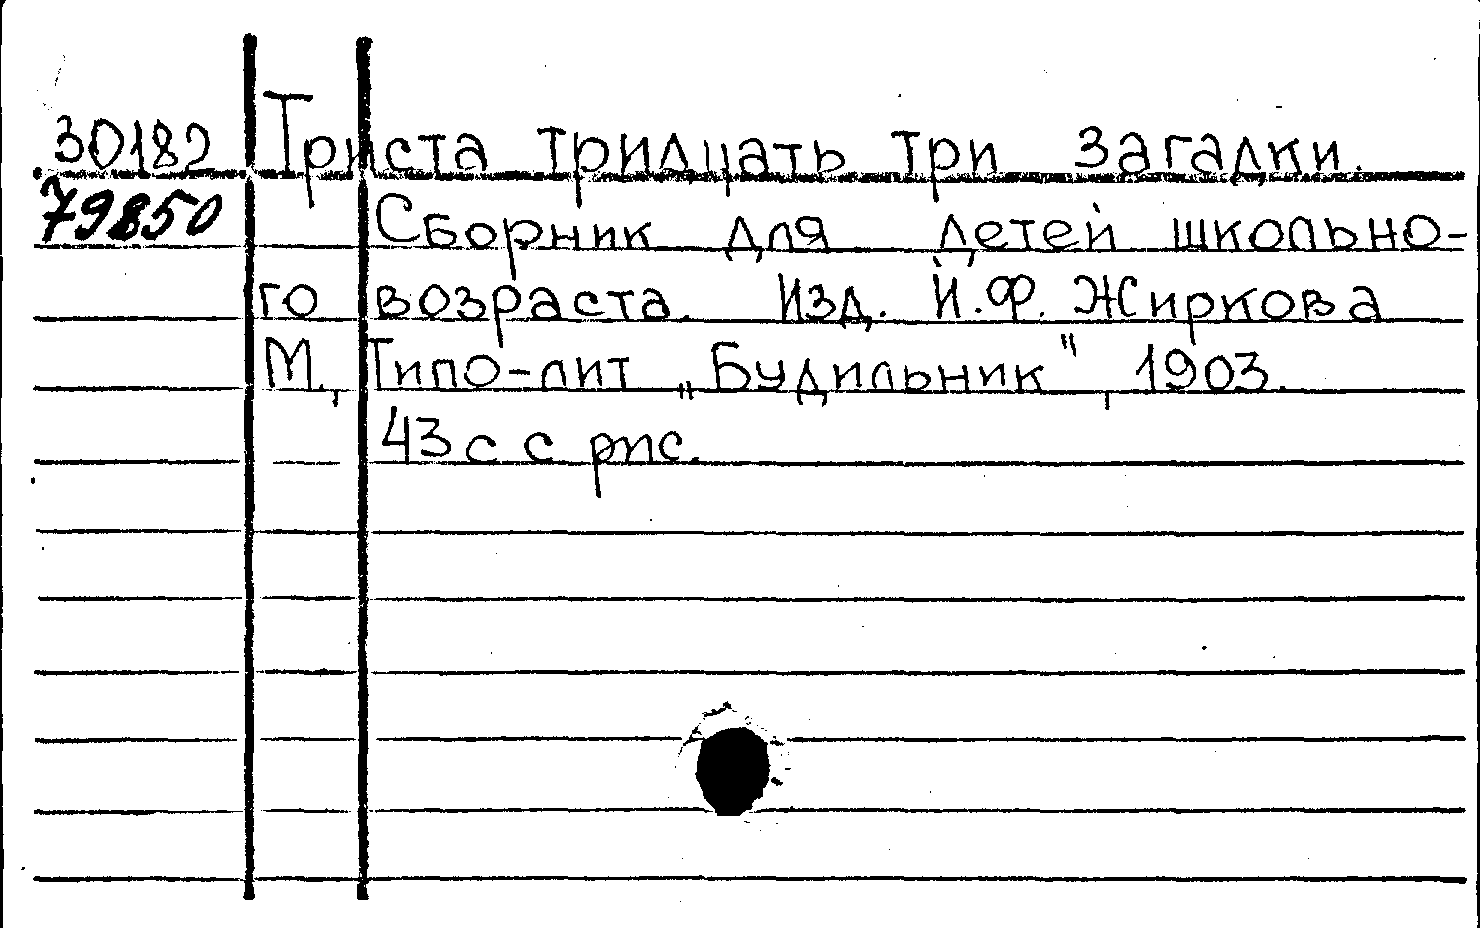 30182 Триста тридцать три загадки.
79850 Сборник для детей школьно-
го возраста. Изд. И.Ф. Жиркова
М., Типо-лит „Будильник", 1903.
43 с с рис.